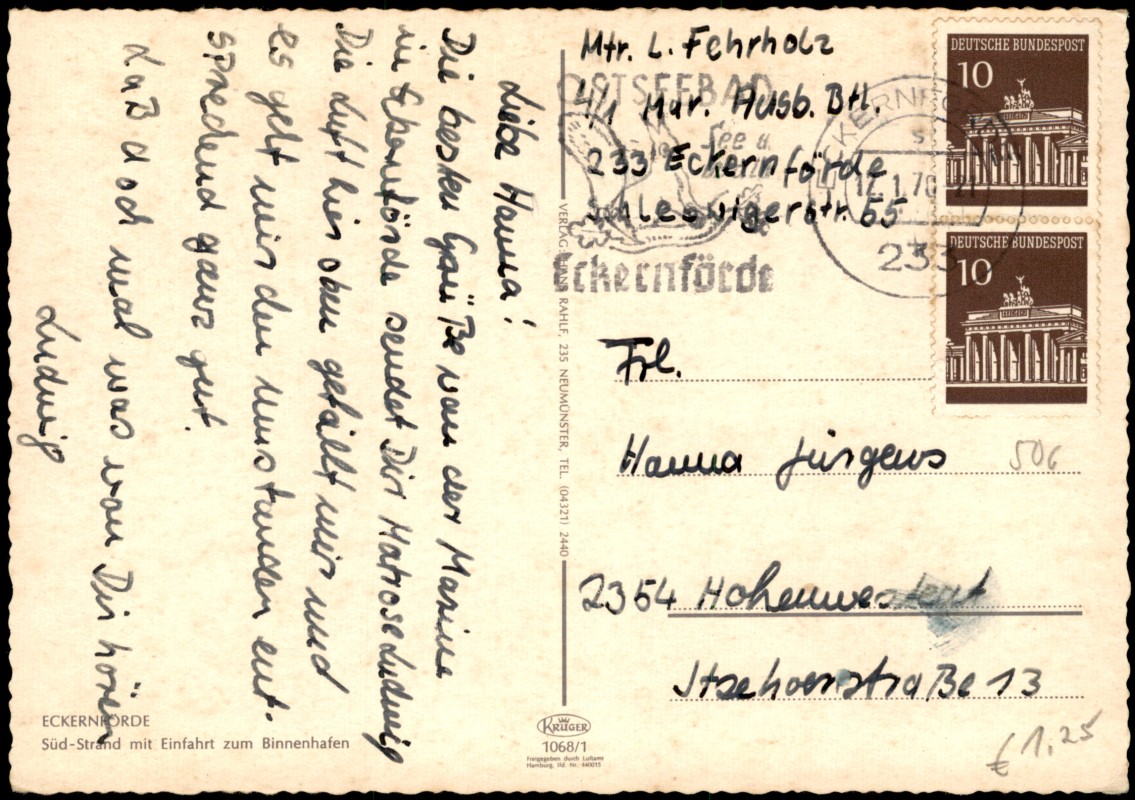 Liebe Hanna!
Die besten Grüße von der Marine
in Eckernförde sendet Dir Matrose Ludwig
Die Luft hier oben gefällt mir und
es geht mir den Umständen ent.
sprechend ganz gut.
Laß doch mal was von Dir hören
Ludwig
ECKERNFÖRDE
Süd-Strand mit Einfahrt zum Binnenhafen
VERLAG: HANS RAHLF, 235 NEUMÜNSTER, TEL. (04321) 2440
KRÜGER
1068/1
Freigegeben durch Luftamt
Hamburg, lfd. Nr. 440015
Mtr. L. Fehrholz
4/1 Mar. Ausb. Btl.
233 Eckernförde
Schleswigerstr. 55
OSTSEEBAD
See u.
Eckernförde
ECKERNFÖRDE
17.1.70-21
233
DEUTSCHE BUNDESPOST
10
DEUTSCHE BUNDESPOST
10
Frl.
Hanna Jürgens
506
2354 Hohenwestedt
Itzehoerstraße 13
€ 1,25